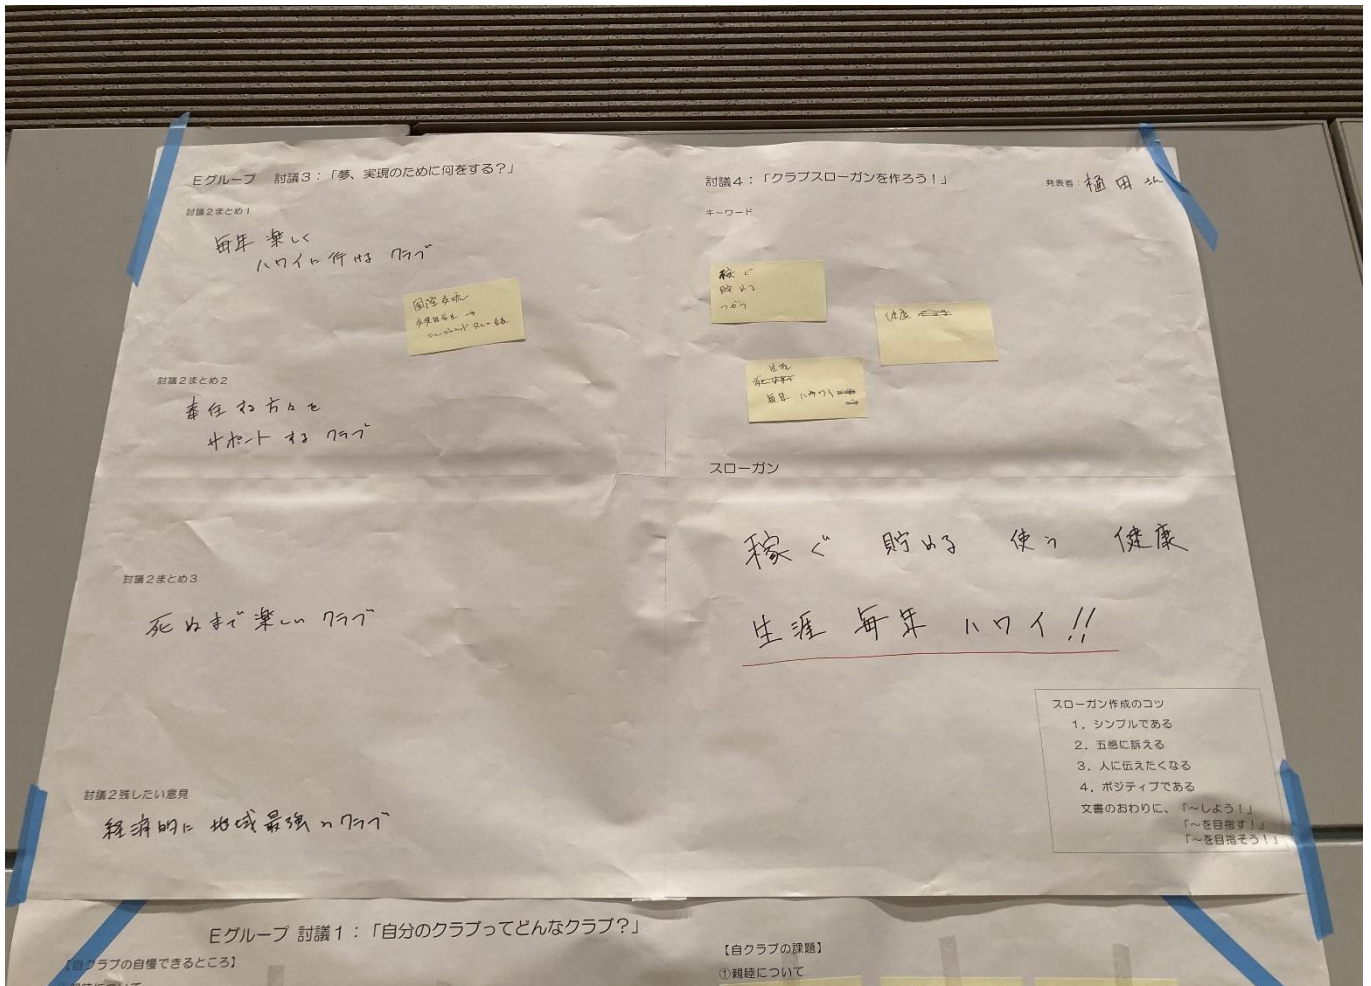 Eグループ 討議3:「夢、実現のために何をする?」
討議2まとめ1
毎年 楽しく
ハワイに行ける クラブ
国際交流
討議2まとめ2
奉仕する方々を
サポートする クラブ
討議2まとめ3
死ぬまで楽しい クラブ
討議2残したい意見
経済的に 地域最強のクラブ
討議4:「クラブスローガンを作ろう!」
発表者:樋田さん
キーワード
稼ぐ
貯める
つかう
健康
生涯
毎年 ハワイ
スローガン
稼ぐ 貯める 使う 健康
生涯 毎年 ハワイ!!
スローガン作成のコツ
1.シンプルである
2.五感に訴える
3.人に伝えたくなる
4.ポジティブである
文書のおわりに、「~しよう!」
「~を目指す!」
「~を目指そう!」
Eグループ 討議1:「自分のクラブってどんなクラブ?」
【自クラブの自慢できるところ】
【自クラブの課題】
①親睦について